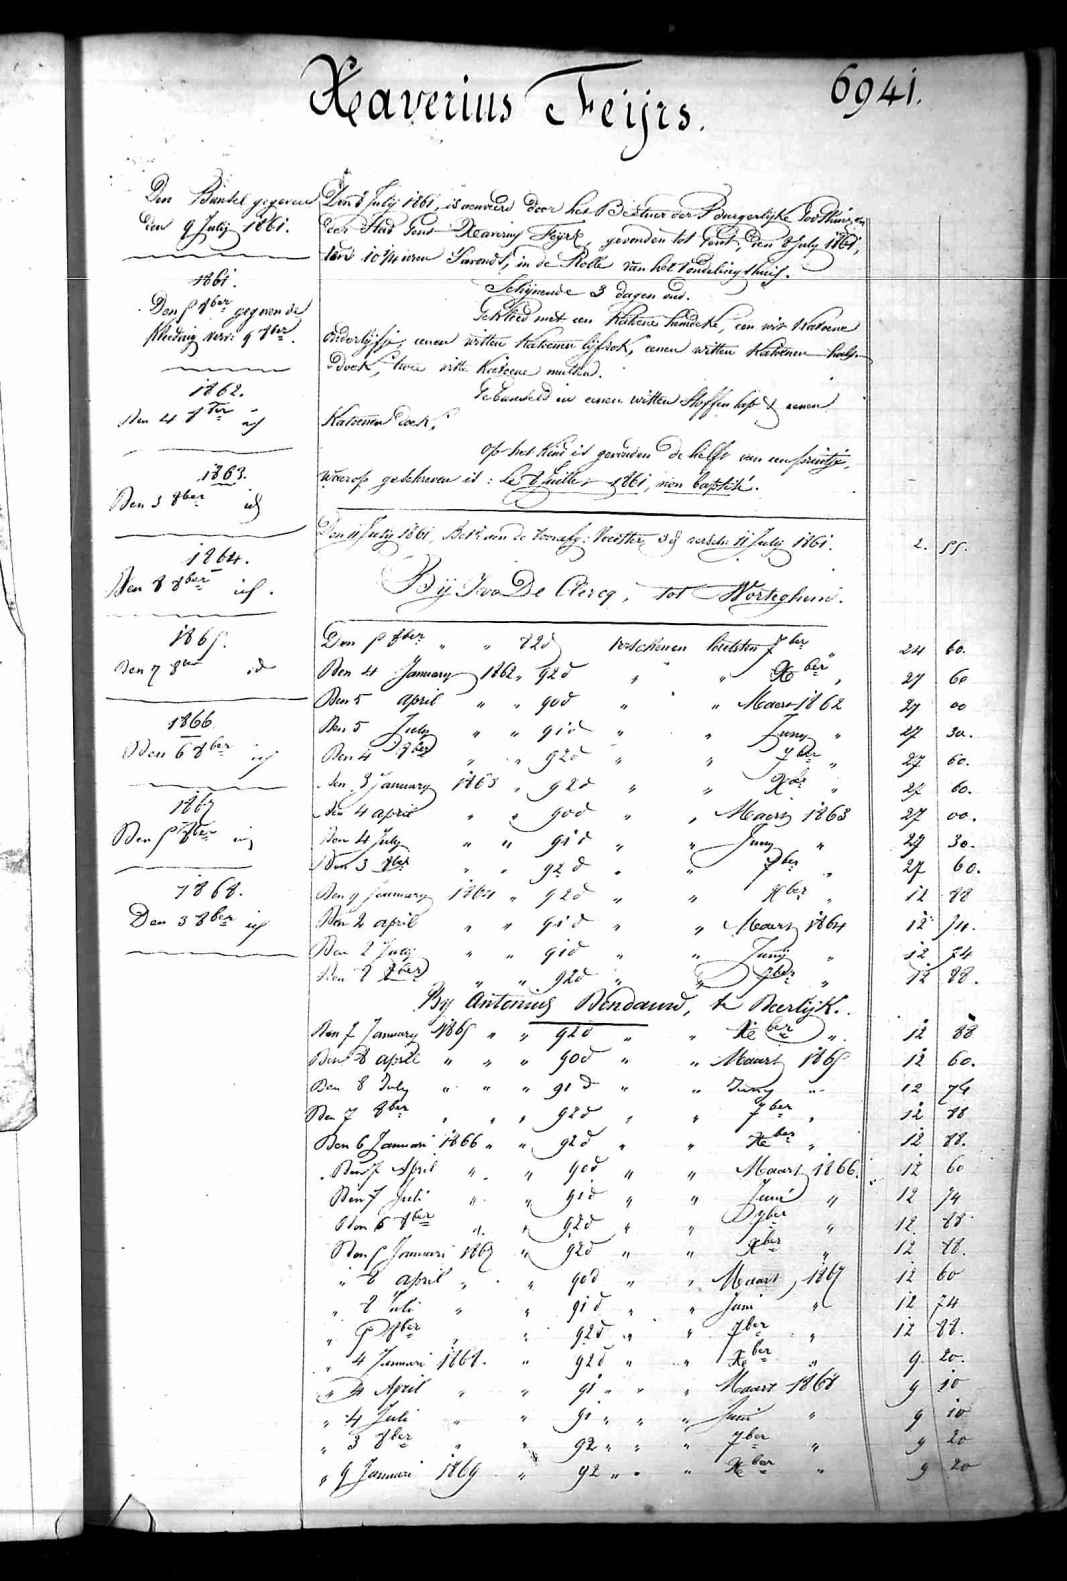 Xaverius Feijrs.
6941.
Den Bundel gegeven
den 9 July 1861.
1861.
Den 5 8ber gegevende
Kleeding
1862.
Den 4 8ber id
1863.
Den 3 8ber id
1864.
Den 8 8ber id.
1865.
Den 7 8ber id
1866
Den 6 8ber id
1867
Den 5 8ber id
1868.
Den 3 8ber id
Den 8 July 1861, is door het Bestuer der Burgerlijke Godshuizen
der Stad Gent Xaverius Feijrs, gevonden tot Gent, den 8 July 1861,
ten 10 1/4 uren s'avonds, in de Rolle van het vondelingshuis.
Schijnende 3 dagen oud.
Gekleed met een Katoene hemdeke, een wit Katoene
onderlijfje, eenen witten Katoenen lijfrok, eenen witten Katoenen hals-
doek, twee witte Katoene mutsen.
Gebundeld in eenen witten stoffen lap & eenen
Katoenen doek.
Op het kind is gevonden de helft van een printje,
waerop geschreven is : Le 8 Juillet 1861, non baptisé.
Den 11 July 1861, Bet: aan de Voorafg: Voedster, 3 d versch: 11 July 1861. 2. 55.
Bij Ivo De Clercq, tot Worteghem.
Den 5 8ber " " 82d verschenen 7ber " 24 60.
Den 4 January 1862 " 92d " " Xber " 27 60
Den 5 april " " 90d " " Maert 1862 27 00
Den 5 July " " 91d " " Juny " 27 30.
Den 4 8ber " " 92d " " 7ber " 27 60.
Den 3 January 1863 " 92d " " Xber " 27 60.
Den 4 april " " 90d " " Maert 1863 27 00.
Den 4 July " " 91d " " Juny " 27 30.
Den 3 8ber " " 92d " " 7ber " 27 60.
Den 9 January 1864 " 92d " " Xber " 12 88
Den 2 april " " 91d " " Maert 1864 12 74.
Den 2 July " " 91d " " Juny " 12 74
Den 8 8ber " " 92d " " 7ber " 12 88.
By Antonius Bendauw, te Beerlijk.
Den 7 January 1865 " " 92d " " Xber " 12 88
Den 8 april " " " 90d " " Maart 1865 12 60.
Den 8 July " " " 91d " " Juny " 12 74
Den 7 8ber " " " 92d " " 7ber " 12 88
Den 6 Januari 1866 " " 92d " " Xber " 12 88.
Den 7 April " " 90d " " Maart 1866. 12 60
Den 7 Juli " " 91d " " Juni " 12 74
Den 6 8ber " " 92d " " 7ber " 12 88
Den 5 Januari 1867 " 92d " " Xber " 12 88.
" 8 april " " 90d " " Maart 1867 12 60
" 8 Juli " " 91d " " Juni " 12 74
" 5 8ber " " 92d " " 7ber " 12 88.
" 4 Januari 1868. " 92d " " Xber " 9 20.
" 4 April " " 91 " " " Maart 1868 9 10
" 4 Juli " " 91 " " " Juni " 9 10
" 3 8ber " " 92 " " " 7ber " 9 20
" 9 Januari 1869 " 92 " " " Xber " 9 20